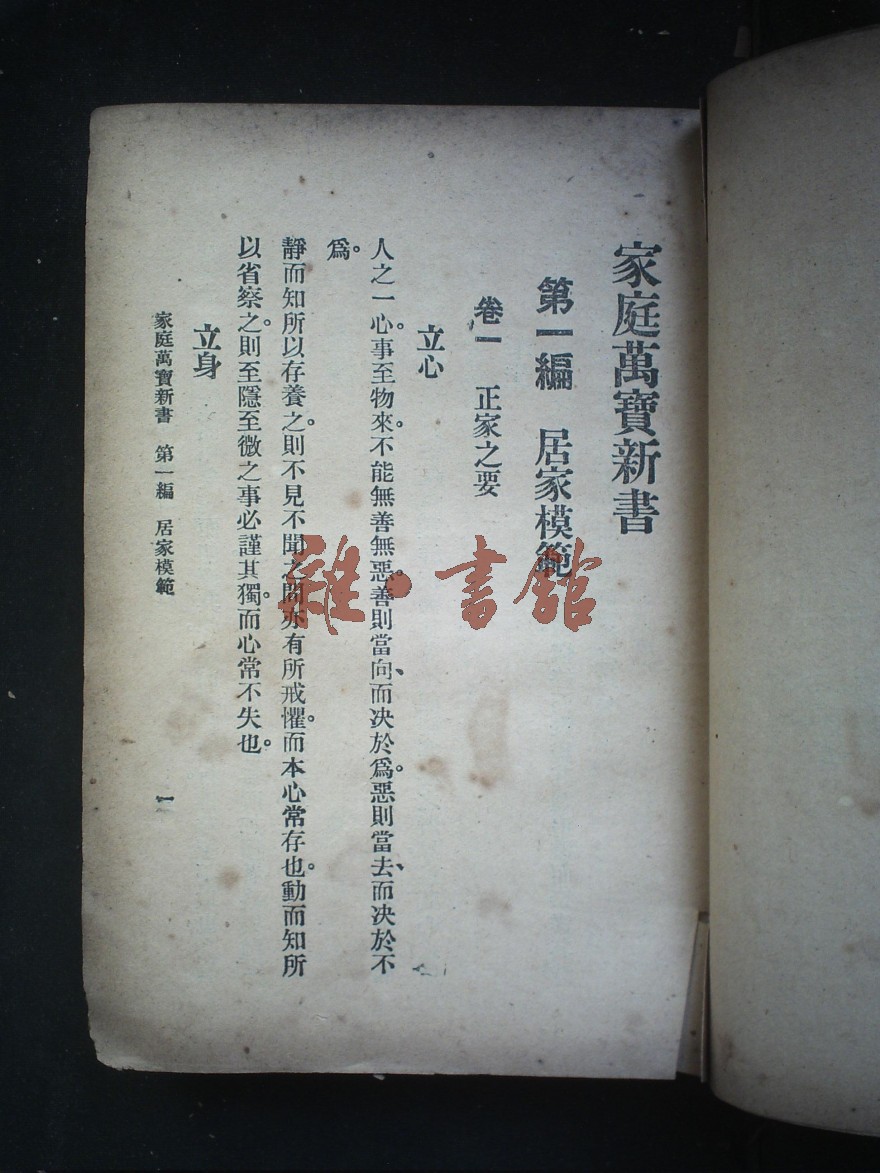 家庭萬寶新書
第一編　居家模範
卷一　正家之要
立心
人之一心。事至物來。不能無善無惡。善則當向、而決於爲。惡則當去、而決於不
爲。
靜而知所以存養之。則不見不聞之間。亦有所戒懼。而本心常存也。動而知所
以省察之。則至隱至微之事必謹其獨。而心常不失也。
立身
家庭萬寶新書　第一編　居家模範
一
雜·書館